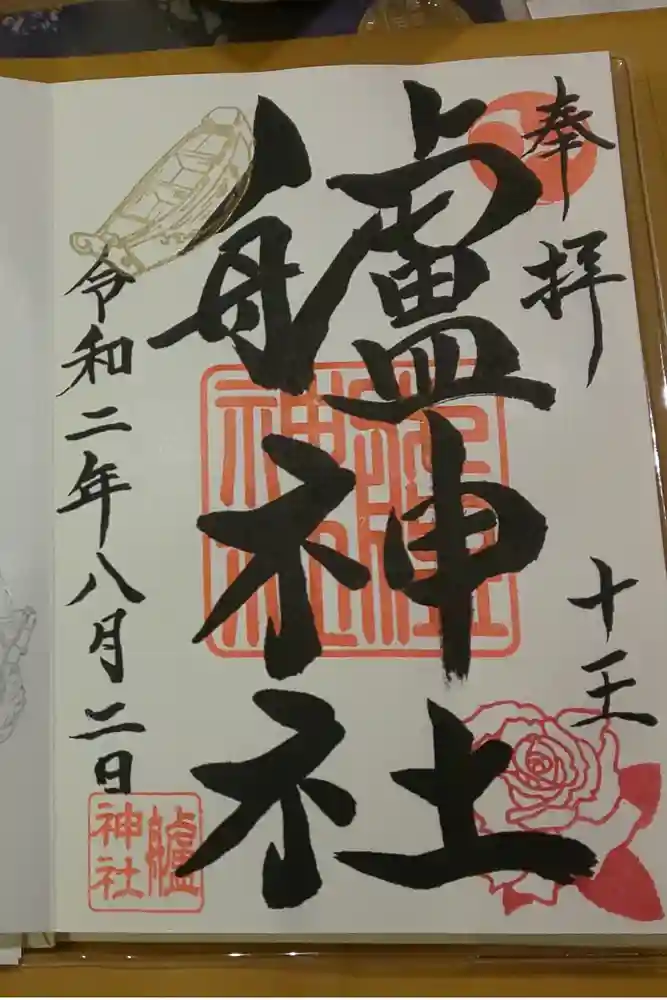 奉拝
十王
艫神社
令和二年八月二日
艫
神社